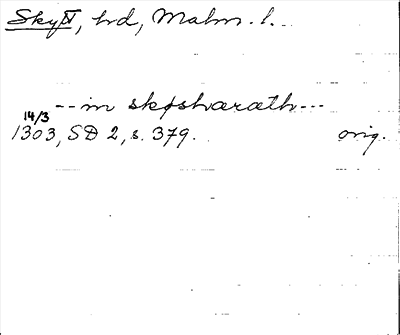 Skytt, hd, Malm. l.
-- in skǿshæræth ---
14/3
1303, SD 2, s. 379. orig.